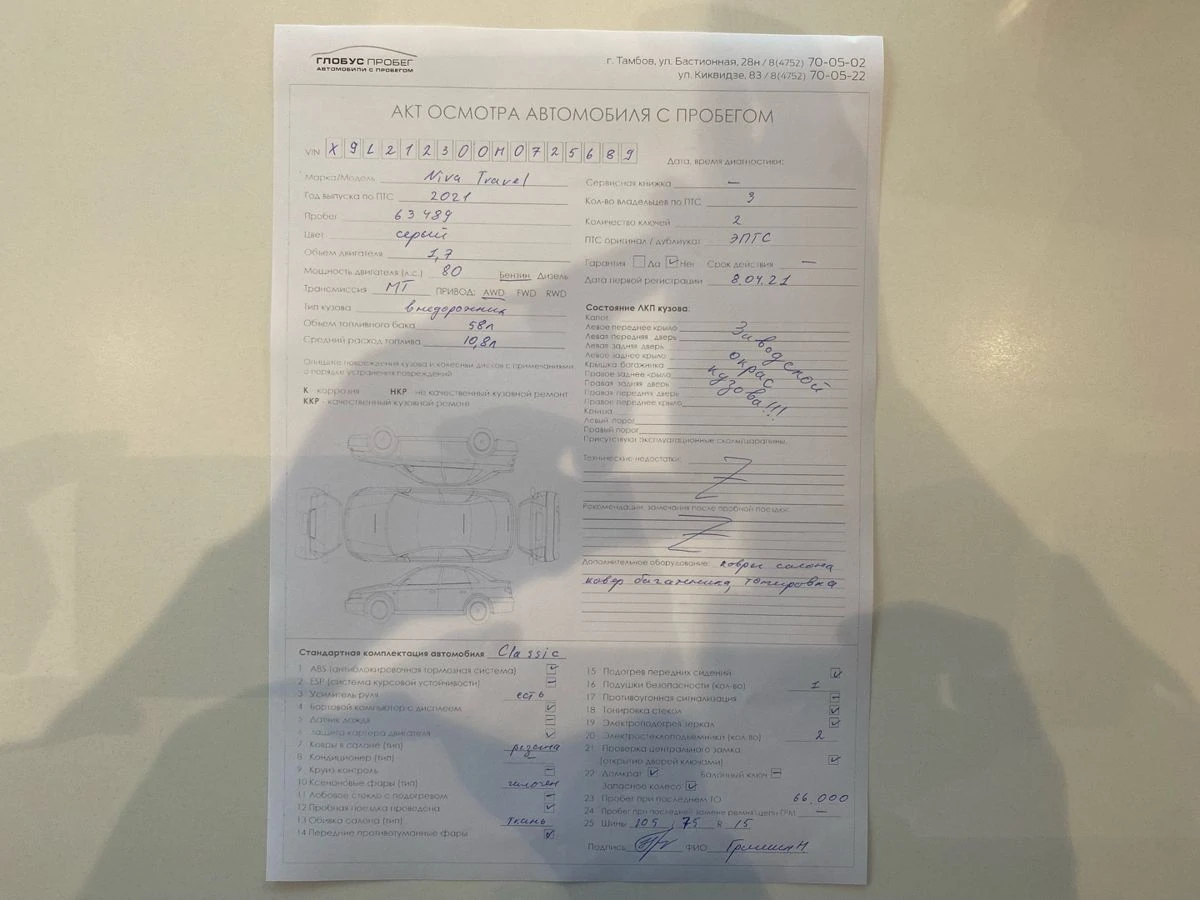 ГЛОБУС ПРОБЕГ
АВТОМОБИЛИ С ПРОБЕГОМ
г. Тамбов, ул. Бастионная, 28н / 8(4752) 70-05-02
ул. Киквидзе, 83 / 8(4752) 70-05-22
АКТ ОСМОТРА АВТОМОБИЛЯ С ПРОБЕГОМ
VIN X9L212300M0725689
Дата, время диагностики:
Марка/Модель Niva Travel
Год выпуска по ПТС 2021
Пробег 63489
Цвет серый
Объем двигателя 1,7
Мощность двигателя (л.с.) 80 Бензин Дизель
Трансмиссия МТ ПРИВОД: AWD FWD RWD
Тип кузова внедорожник
Объем топливного бака 58л
Средний расход топлива 10,8л
Сервисная книжка —
Кол-во владельцев по ПТС 3
Количество ключей 2
ПТС оригинал / дубликат ЭПТС
Гарантия Да Нет Срок действия —
Дата первой регистрации 8.04.21
Опишите повреждения кузова и колесных дисков с примечаниями
о порядке устранения повреждений
К - коррозия НКР - не качественный кузовной ремонт
ККР - качественный кузовной ремонт
Состояние ЛКП кузова:
Капот
Левое переднее крыло
Левая передняя дверь
Левая задняя дверь
Левое заднее крыло
Крышка багажника
Правое заднее крыло
Правая задняя дверь
Правая передняя дверь
Правое переднее крыло
Крыша
Левый порог
Правый порог
Заводской
окрас
кузова!!!
Присутствуют эксплуатационные сколы/царапины.
Технические недостатки: Z
Рекомендации, замечания после пробной поездки: Z
Дополнительное оборудование: ковры салона
ковер багажника, тонировка
Стандартная комплектация автомобиля Classic
1 ABS (антиблокировочная тормозная система)
2 ESP (система курсовой устойчивости) —
3 Усилитель руля есть
4 Бортовой компьютер с дисплеем
5 Датчик дождя —
6 Защита картера двигателя
7 Ковры в салоне (тип) резина
8 Кондиционер (тип)
9 Круиз-контроль —
10 Ксеноновые фары (тип) галоген
11 Лобовое стекло с подогревом —
12 Пробная поездка проведена
13 Обивка салона (тип) ткань
14 Передние противотуманные фары
15 Подогрев передних сидений
16 Подушки безопасности (кол-во) 1
17 Противоугонная сигнализация —
18 Тонировка стекол
19 Электроподогрев зеркал
20 Электростеклоподъемники (кол-во) 2
21 Проверка центрального замка
(открытие дверей ключами)
22 Домкрат Балонный ключ —
Запасное колесо
23 Пробег при последнем ТО 66.000
24 Пробег при последней замене ремня/цепи ГРМ —
25 Шины 205 / 75 R 15
Подпись ФИО